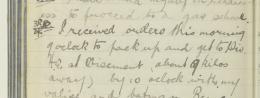 to proceed to a gas school.
I received orders this morning
9 oclock to pack up and get to Div
H.Q. at Visemont, about 9 kilos
away, by 10 oclock with my
valise and batman